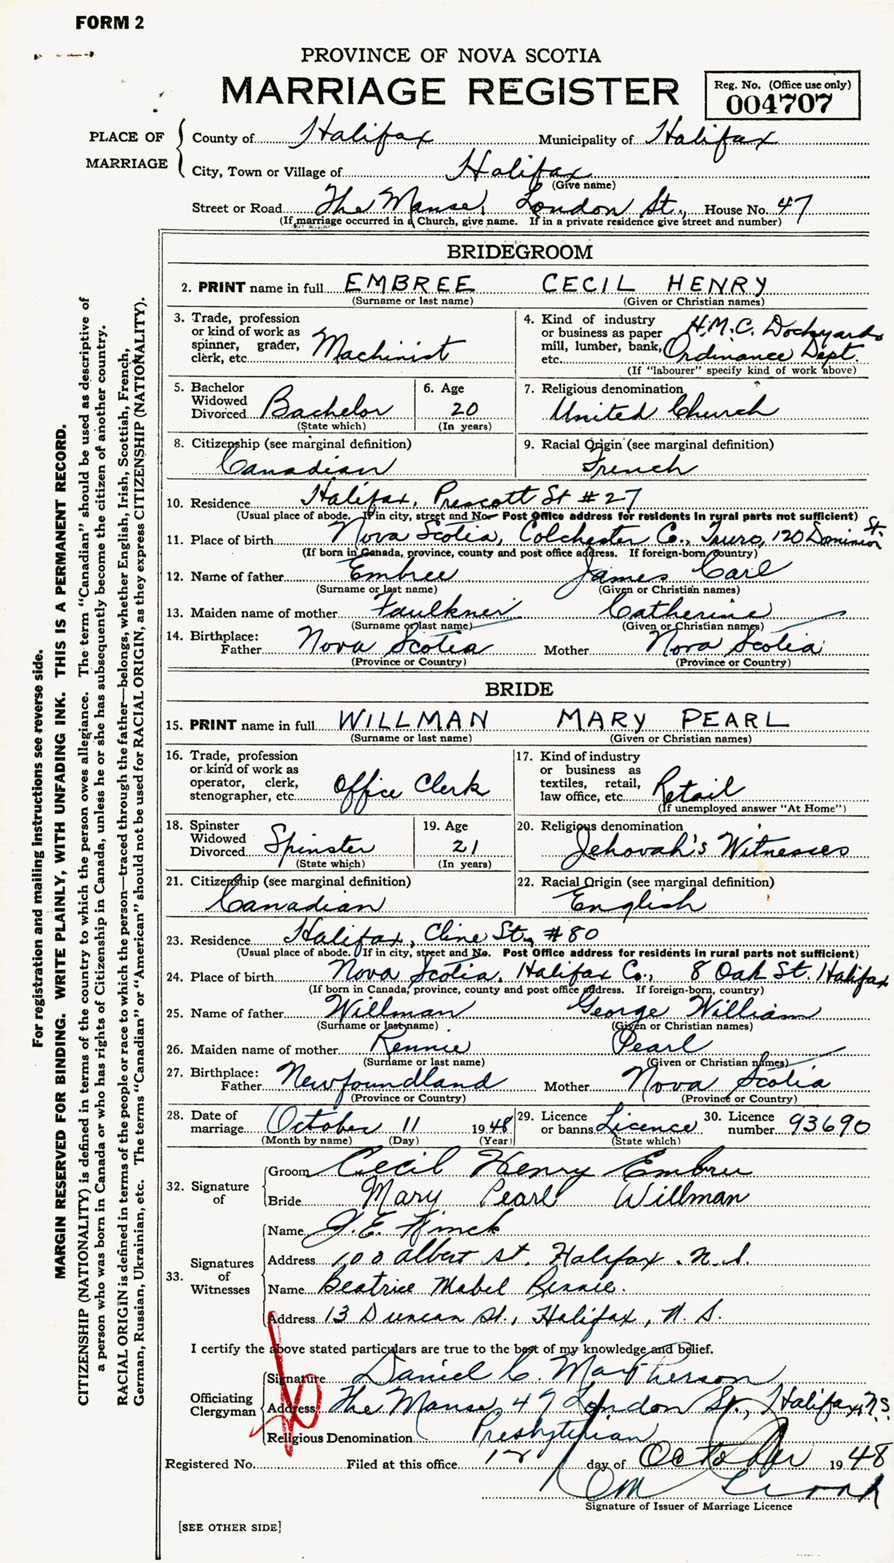 FORM 2
PROVINCE OF NOVA SCOTIA
MARRIAGE REGISTER
Reg. No. (Office use only)
004707
PLACE OF MARRIAGE
County of Halifax Municipality of Halifax
City, Town or Village of Halifax
(Give name)
Street or Road The Manse, London St., House No. 47
(If marriage occurred in a Church, give name. If in a private residence give street and number)
BRIDEGROOM
2. PRINT name in full EMBREE CECIL HENRY
(Surname or last name) (Given or Christian names)
3. Trade, profession or kind of work as spinner, grader, clerk, etc. Machinist
4. Kind of industry or business as paper mill, lumber, bank, etc. H.M.C. Dockyard Ordinance Dept.
(If "labourer" specify kind of work above)
5. Bachelor Widowed Divorced Bachelor
(State which)
6. Age 20
(In years)
7. Religious denomination United Church
8. Citizenship (see marginal definition) Canadian
9. Racial Origin (see marginal definition) French
10. Residence Halifax, Prescott St #27
(Usual place of abode. If in city, street and No. Post Office address for residents in rural parts not sufficient)
11. Place of birth Nova Scotia, Colchester Co., Truro, 120 Dominion St.
(If born in Canada, province, county and post office address. If foreign-born, country)
12. Name of father Embree James Carl
(Surname or last name) (Given or Christian names)
13. Maiden name of mother Faulkner Catherine
(Surname or last name) (Given or Christian names)
14. Birthplace: Father Nova Scotia Mother Nova Scotia
(Province or Country) (Province or Country)
BRIDE
15. PRINT name in full WILLMAN MARY PEARL
(Surname or last name) (Given or Christian names)
16. Trade, profession or kind of work as operator, clerk, stenographer, etc. Office Clerk
17. Kind of industry or business as textiles, retail, law office, etc. Retail
(If unemployed answer "At Home")
18. Spinster Widowed Divorced Spinster
(State which)
19. Age 21
(In years)
20. Religious denomination Jehovah's Witnesses
21. Citizenship (see marginal definition) Canadian
22. Racial Origin (see marginal definition) English
23. Residence Halifax, Cline St, #80
(Usual place of abode. If in city, street and No. Post Office address for residents in rural parts not sufficient)
24. Place of birth Nova Scotia, Halifax Co., 8 Oak St. Halifax
(If born in Canada, province, county and post office address. If foreign-born, country)
25. Name of father Willman George William
(Surname or last name) (Given or Christian names)
26. Maiden name of mother Rennie Pearl
(Surname or last name) (Given or Christian names)
27. Birthplace: Father Newfoundland Mother Nova Scotia
(Province or Country) (Province or Country)
28. Date of marriage October 11 1948
(Month by name) (Day) (Year)
29. Licence or banns Licence
(State which)
30. Licence number 93690
32. Signature of
Groom Cecil Henry Embree
Bride Mary Pearl Willman
33. Signatures of Witnesses
Name J.E. Winck
Address 100 Albert St. Halifax. N.S.
Name Beatrice Mabel Rennie.
Address 13 Duncan St., Halifax, N.S.
I certify the above stated particulars are true to the best of my knowledge and belief.
Officiating Clergyman
Signature Daniel C. MacPherson
Address The Manse, 47 London St., Halifax, N.S.
Religious Denomination Presbyterian
Registered No. Filed at this office 12 day of October 1948
Signature of Issuer of Marriage Licence
[SEE OTHER SIDE]
For registration and mailing instructions see reverse side.
MARGIN RESERVED FOR BINDING. WRITE PLAINLY, WITH UNFADING INK. THIS IS A PERMANENT RECORD.
CITIZENSHIP (NATIONALITY) is defined in terms of the country to which the person owes allegiance. The term "Canadian" should be used as descriptive of
a person who was born in Canada or who has rights of Citizenship in Canada, unless he or she has subsequently become the citizen of another country.
RACIAL ORIGIN is defined in terms of the people or race to which the person—traced through the father—belongs, whether English, Irish, Scottish, French,
German, Russian, Ukrainian, etc. The terms "Canadian" or "American" should not be used for RACIAL ORIGIN, as they express CITIZENSHIP (NATIONALITY).